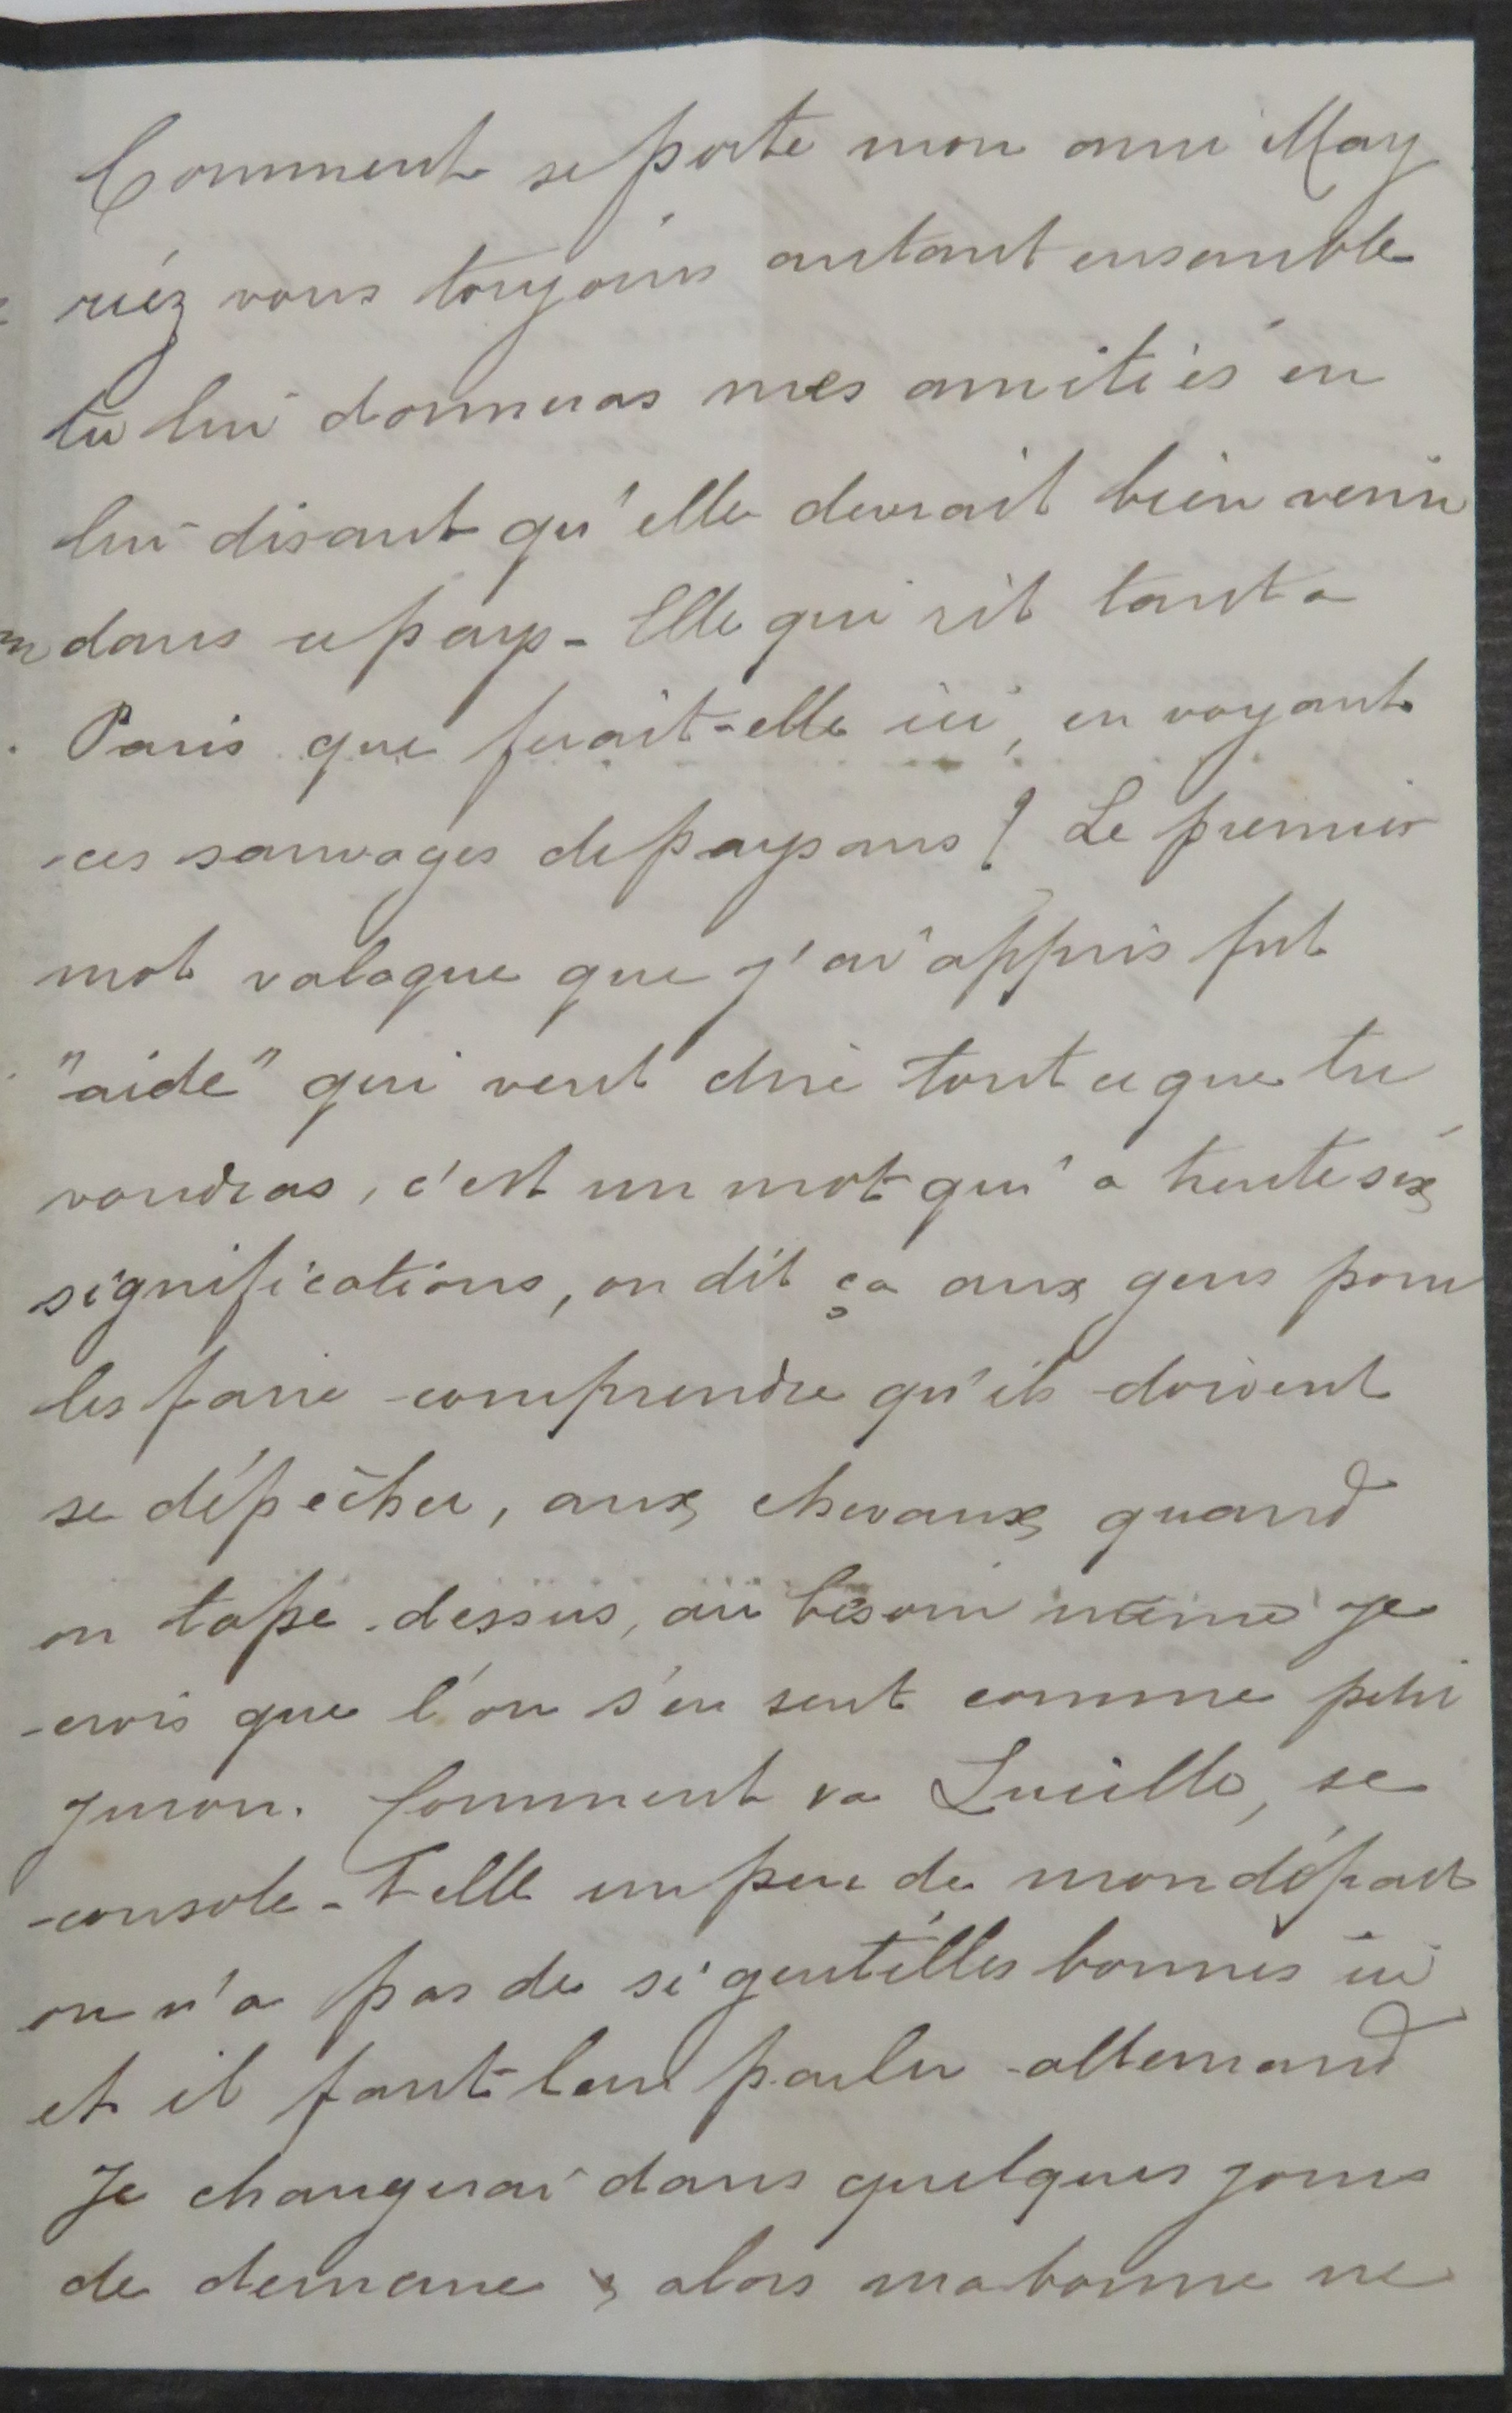 Comment se porte mon ami May
riez vous toujours autant ensemble
tu lui donneras mes amitiés en
lui disant qu'elle devrait bien venir
dans ce pays - Elle qui rit tant a
Paris que ferait-elle ici, en voyant
ces sauvages de paysans ! Le premier
mot valaque que j'ai appris fut
"aide" qui veut dire tout ce que tu
voudras, c'est un mot qui a trente six
significations, on dit ça aux gens pour
les faire comprendre qu'ils doivent
se dépêcher, aux chevaux quand
on tape dessus, au besoin même je
crois que l'on s'en sert comme petit
juron. Comment va Lucille, se
console-t elle un peu de mon départ
on n'a pas de si gentilles bonnes ici
et il faut leur parler allemand
Je changerai dans quelques jours
de demeure alors ma bonne ne